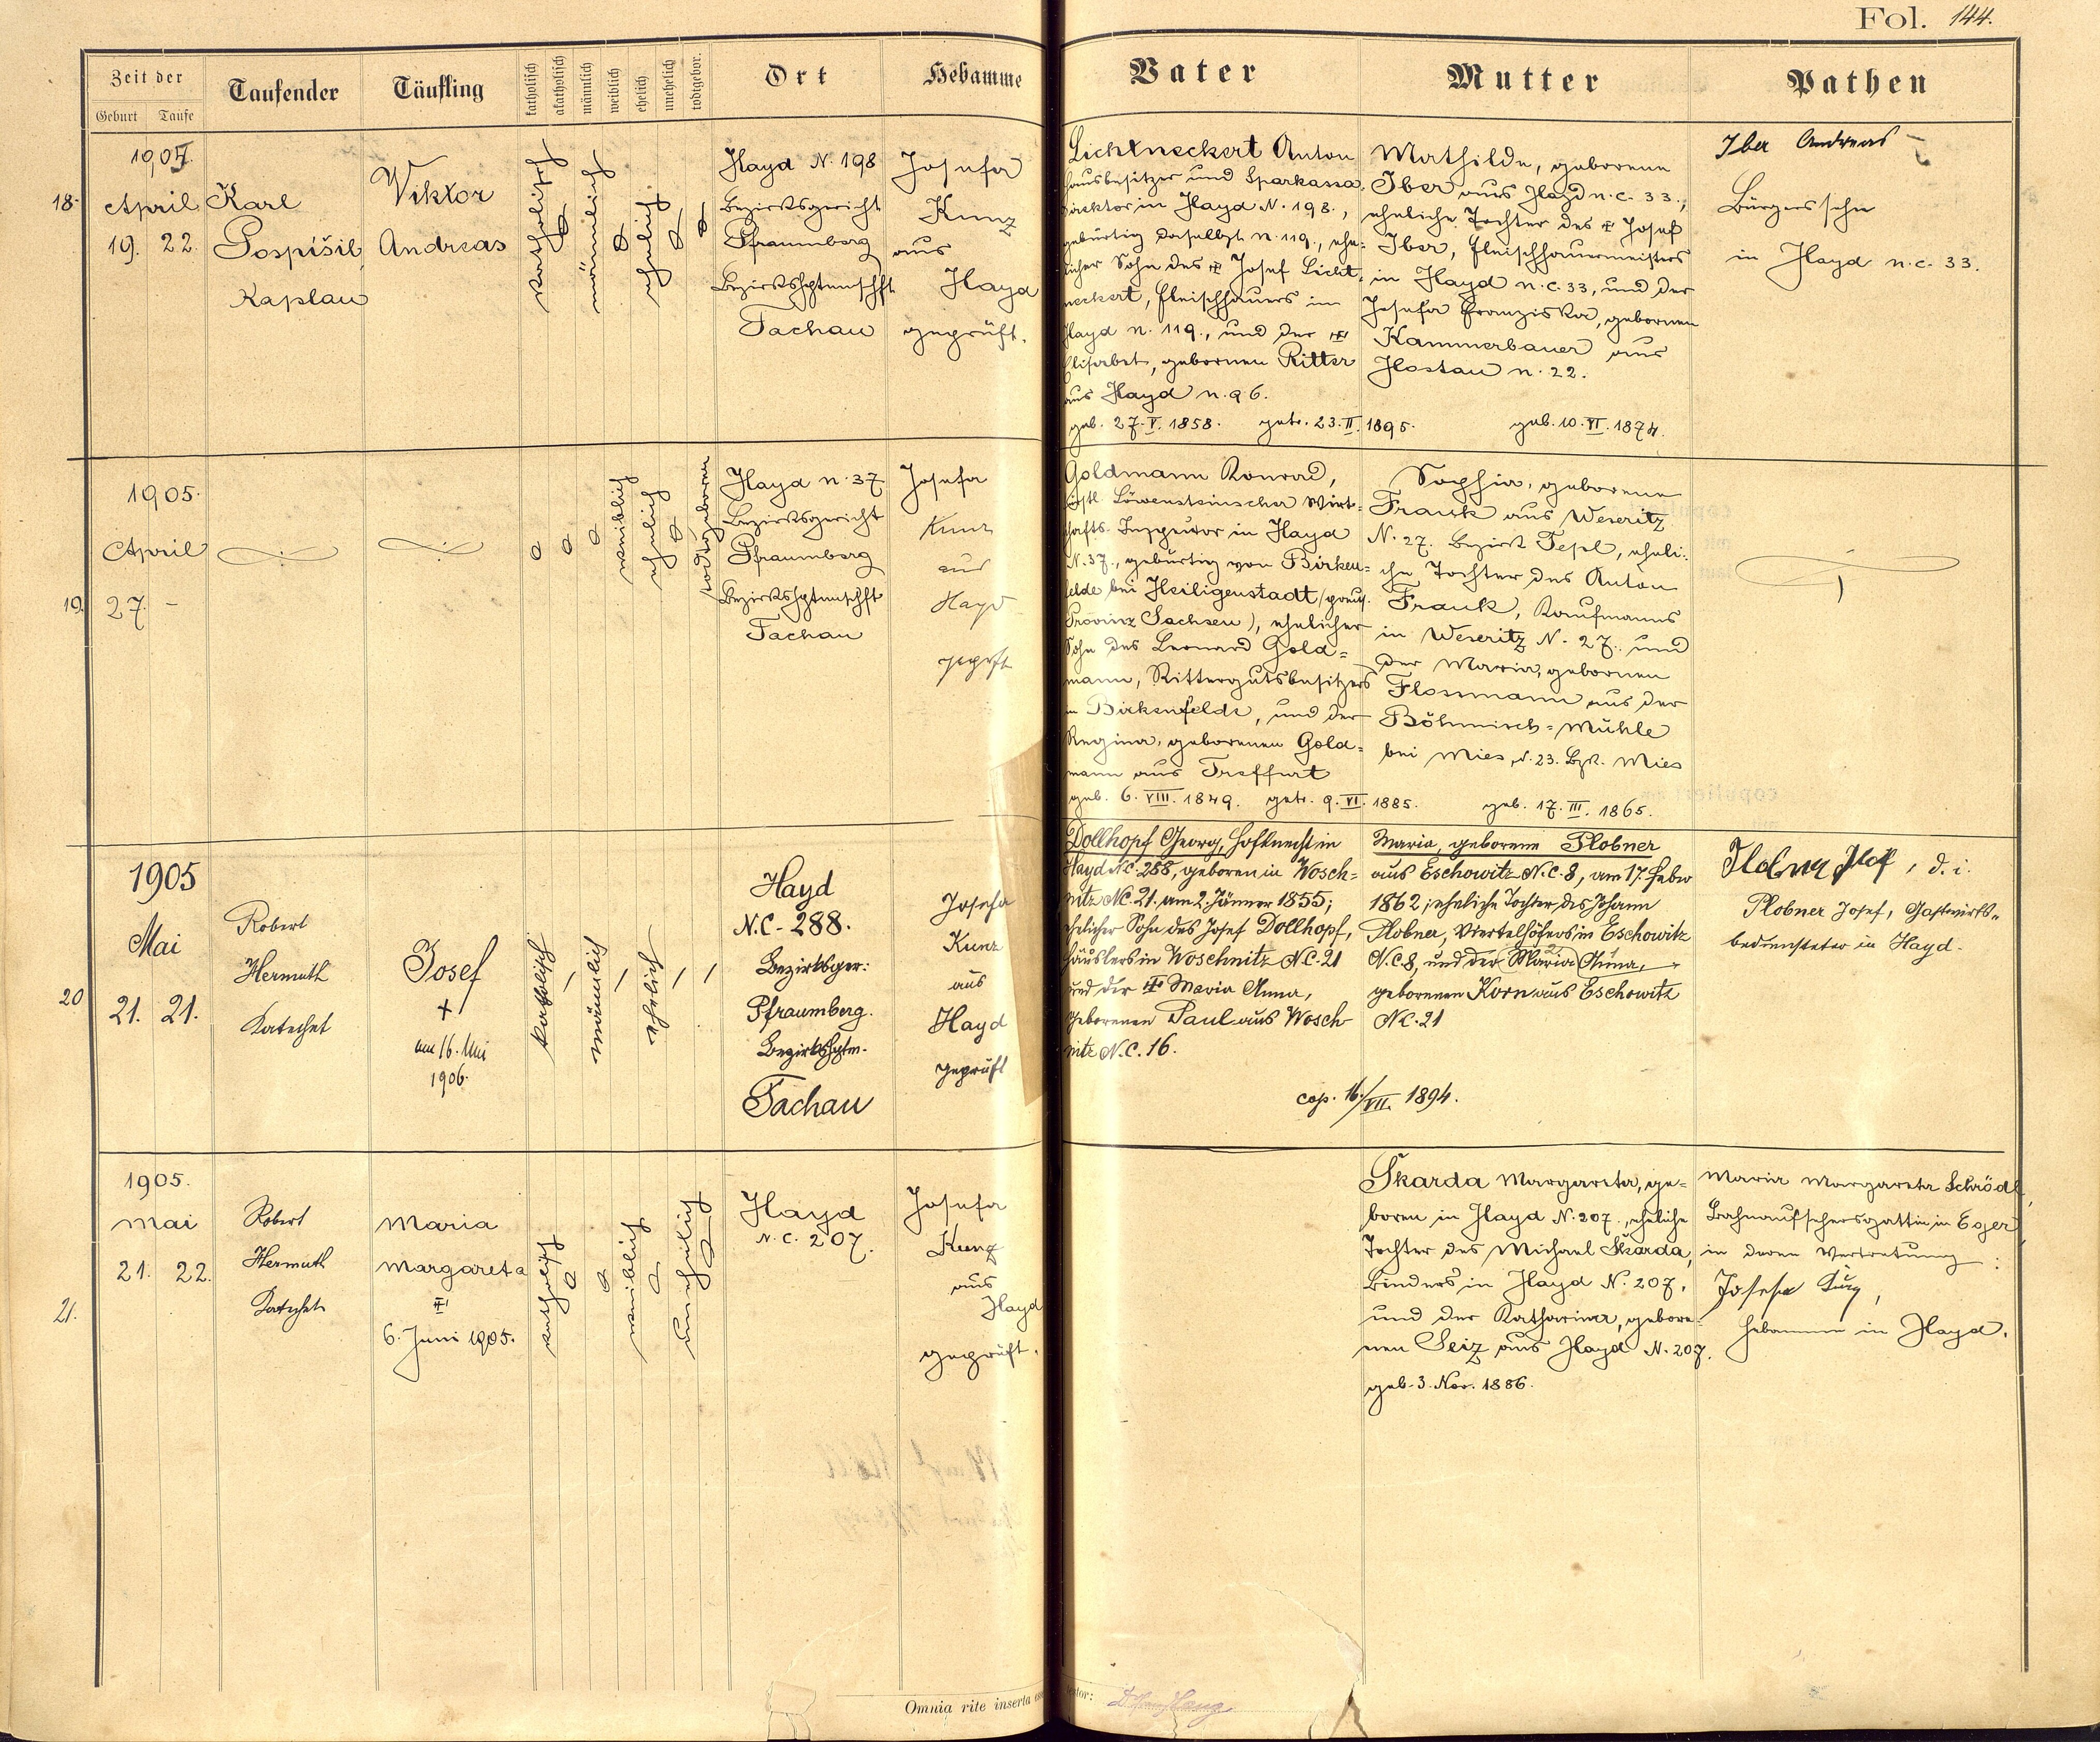 Fol. 144.
Zeit der
Geburt Taufe
Taufender
Täufling
katholisch
akatholisch
männlich
weiblich
ehelich
unehelich
todtgebor.
Ort
Hebamme
Vater
Mutter
Pathen
18.
1905.
April
19. 22.
Karl
Pospíšil
Kaplan
Viktor
Andreas
katholisch
männlich
ehelich
Hayd N. 198
Bezirksgericht
Pfraumberg
Bezirkshptmschft
Tachau
Josefa
Kunz
aus
Hayd
geprüft.
Lichtneckert Anton
Hausbesitzer und Sparkassa-
direktor in Hayd N. 198.,
gebürtig daselbst n. 119., ehe-
licher Sohn des Josef Licht-
neckert, Fleischhauers in
Hayd n. 119., und der
Elisabet, gebornen Ritter
aus Hayd n. 96.
geb. 27. V. 1858. getr. 23. II. 1895.
Mathilde, geborene
Iber aus Hayd n. c. 33.,
eheliche Tochter des Josef
Iber, Fleischhauermeisters
in Hayd n. c. 33, und der
Josefa Franziska, gebornen
Kammerbauer aus
Hostau n. 22.
geb. 10. VI. 1874.
Iber Andreas
Bürgerssohn
in Hayd n. c. 33.
19.
1905.
April
27. -
weiblich
ehelich
todtgeboren
Hayd n. 37
Bezirksgericht
Pfraumberg
Bezirkshptmschft
Tachau
Josefa
Kunz
aus
Hayd
geprft
Goldmann Konrad,
fürstl. Löwensteinscher Wirt-
schafts-Inspektor in Hayd
N. 37., gebürtig von Birken-
felde bei Heiligenstadt (preuß.
Provinz Sachsen), ehelicher
Sohn des Leonard Gold=
mann, Rittergutsbesitzers
in Birkenfelde, und der
Regina, geborenen Gold=
mann aus Treffurt
geb. 6. VIII. 1849. getr. 9. VI. 1885.
Sophia, geborene
Frank aus Weseritz
N. 27. Bezirk Tepl, eheli-
che Tochter des Anton
Frank, Kaufmanns
in Weseritz N. 27. und
der Maria, gebornen
Flossmann aus der
Böhmisch=Mühle
bei Mies, N. 23. Bzk. Mies
geb. 17. III. 1865.
20
1905
Mai
21. 21.
Robert
Hermuth
Katechet
Josef
+
am 16. Mai
1906.
katholisch
männlich
ehelich
Hayd
N.C. 288.
Bezirksger:
Pfraumberg.
Bezirkshptm.
Tachau
Josefa
Kunz
aus
Hayd
geprüft
Dollhopf Georg, Hofknecht in
Hayd N.C. 288, geboren in Wosch=
nitz N.C. 21. am 2. Jänner 1855;
ehelicher Sohn des Josef Dollhopf,
Häuslers in Woschnitz N.C. 21
und der Maria Anna,
geborenen Paul aus Wosch-
nitz N.C. 16.
cop. 16./VII. 1894.
Maria, geborene Plobner
aus Eschowitz N.C. 8, am 17. Feber
1862; eheliche Tochter des Johann
Plobner, Viertelhöfers in Eschowitz
N.C. 8, und der Maria Anna,
geborenen Korn aus Eschowitz
N.C. 21
Plobner Josef, d. i.
Plobner Josef, Gastwirts-
bediensteter in Hayd.
21.
1905.
Mai
21. 22.
Robert
Hermuth
Katechet
Maria
Margareta
6. Juni 1905.
katholisch
weiblich
unehelich
Hayd
N. C. 207.
Josefa
Kunz
aus
Hayd
geprüft.
Skarda Margareta, ge-
boren in Hayd N. 207., eheliche
Tochter des Michael Skarda,
Binders in Hayd N. 207,
und der Katharina, gebore-
nen Seiz aus Hayd N. 207.
geb. 3. Nov. 1886.
Maria Margareta Schrödl,
Bahnaufsehersgattin in Eger
in deren Vertretung:
Josefa Kunz,
Hebamme in Hayd.
Omnia rite inserta